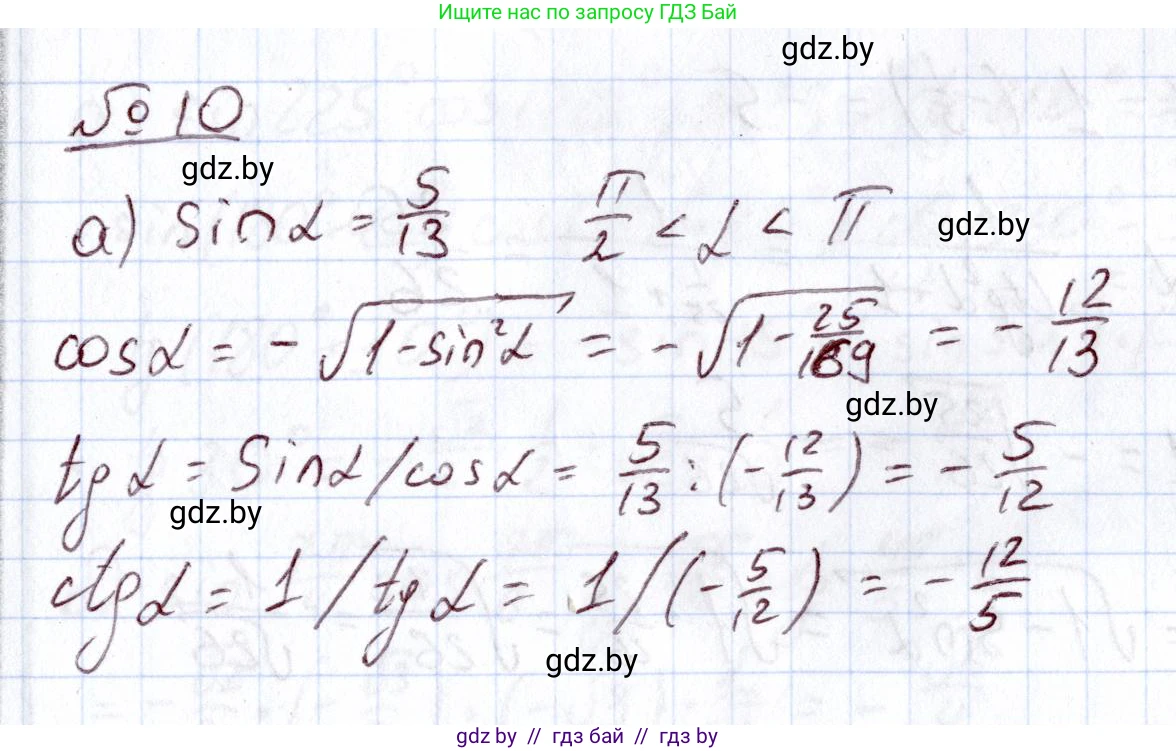 Ищите нас по запросу ГДЗ Бай
gdz.by
№ 10
gdz.by
а) sin α = 5/13   π/2 < α < π
gdz.by
cos α = - √(1 - sin²α) = - √(1 - 25/169) = - 12/13
gdz.by
tg α = sin α / cos α = 5/13 : (- 12/13) = - 5/12
gdz.by
ctg α = 1 / tg α = 1 / (- 5/12) = - 12/5
gdz.by
gdz.by // гдз бай // гдз by